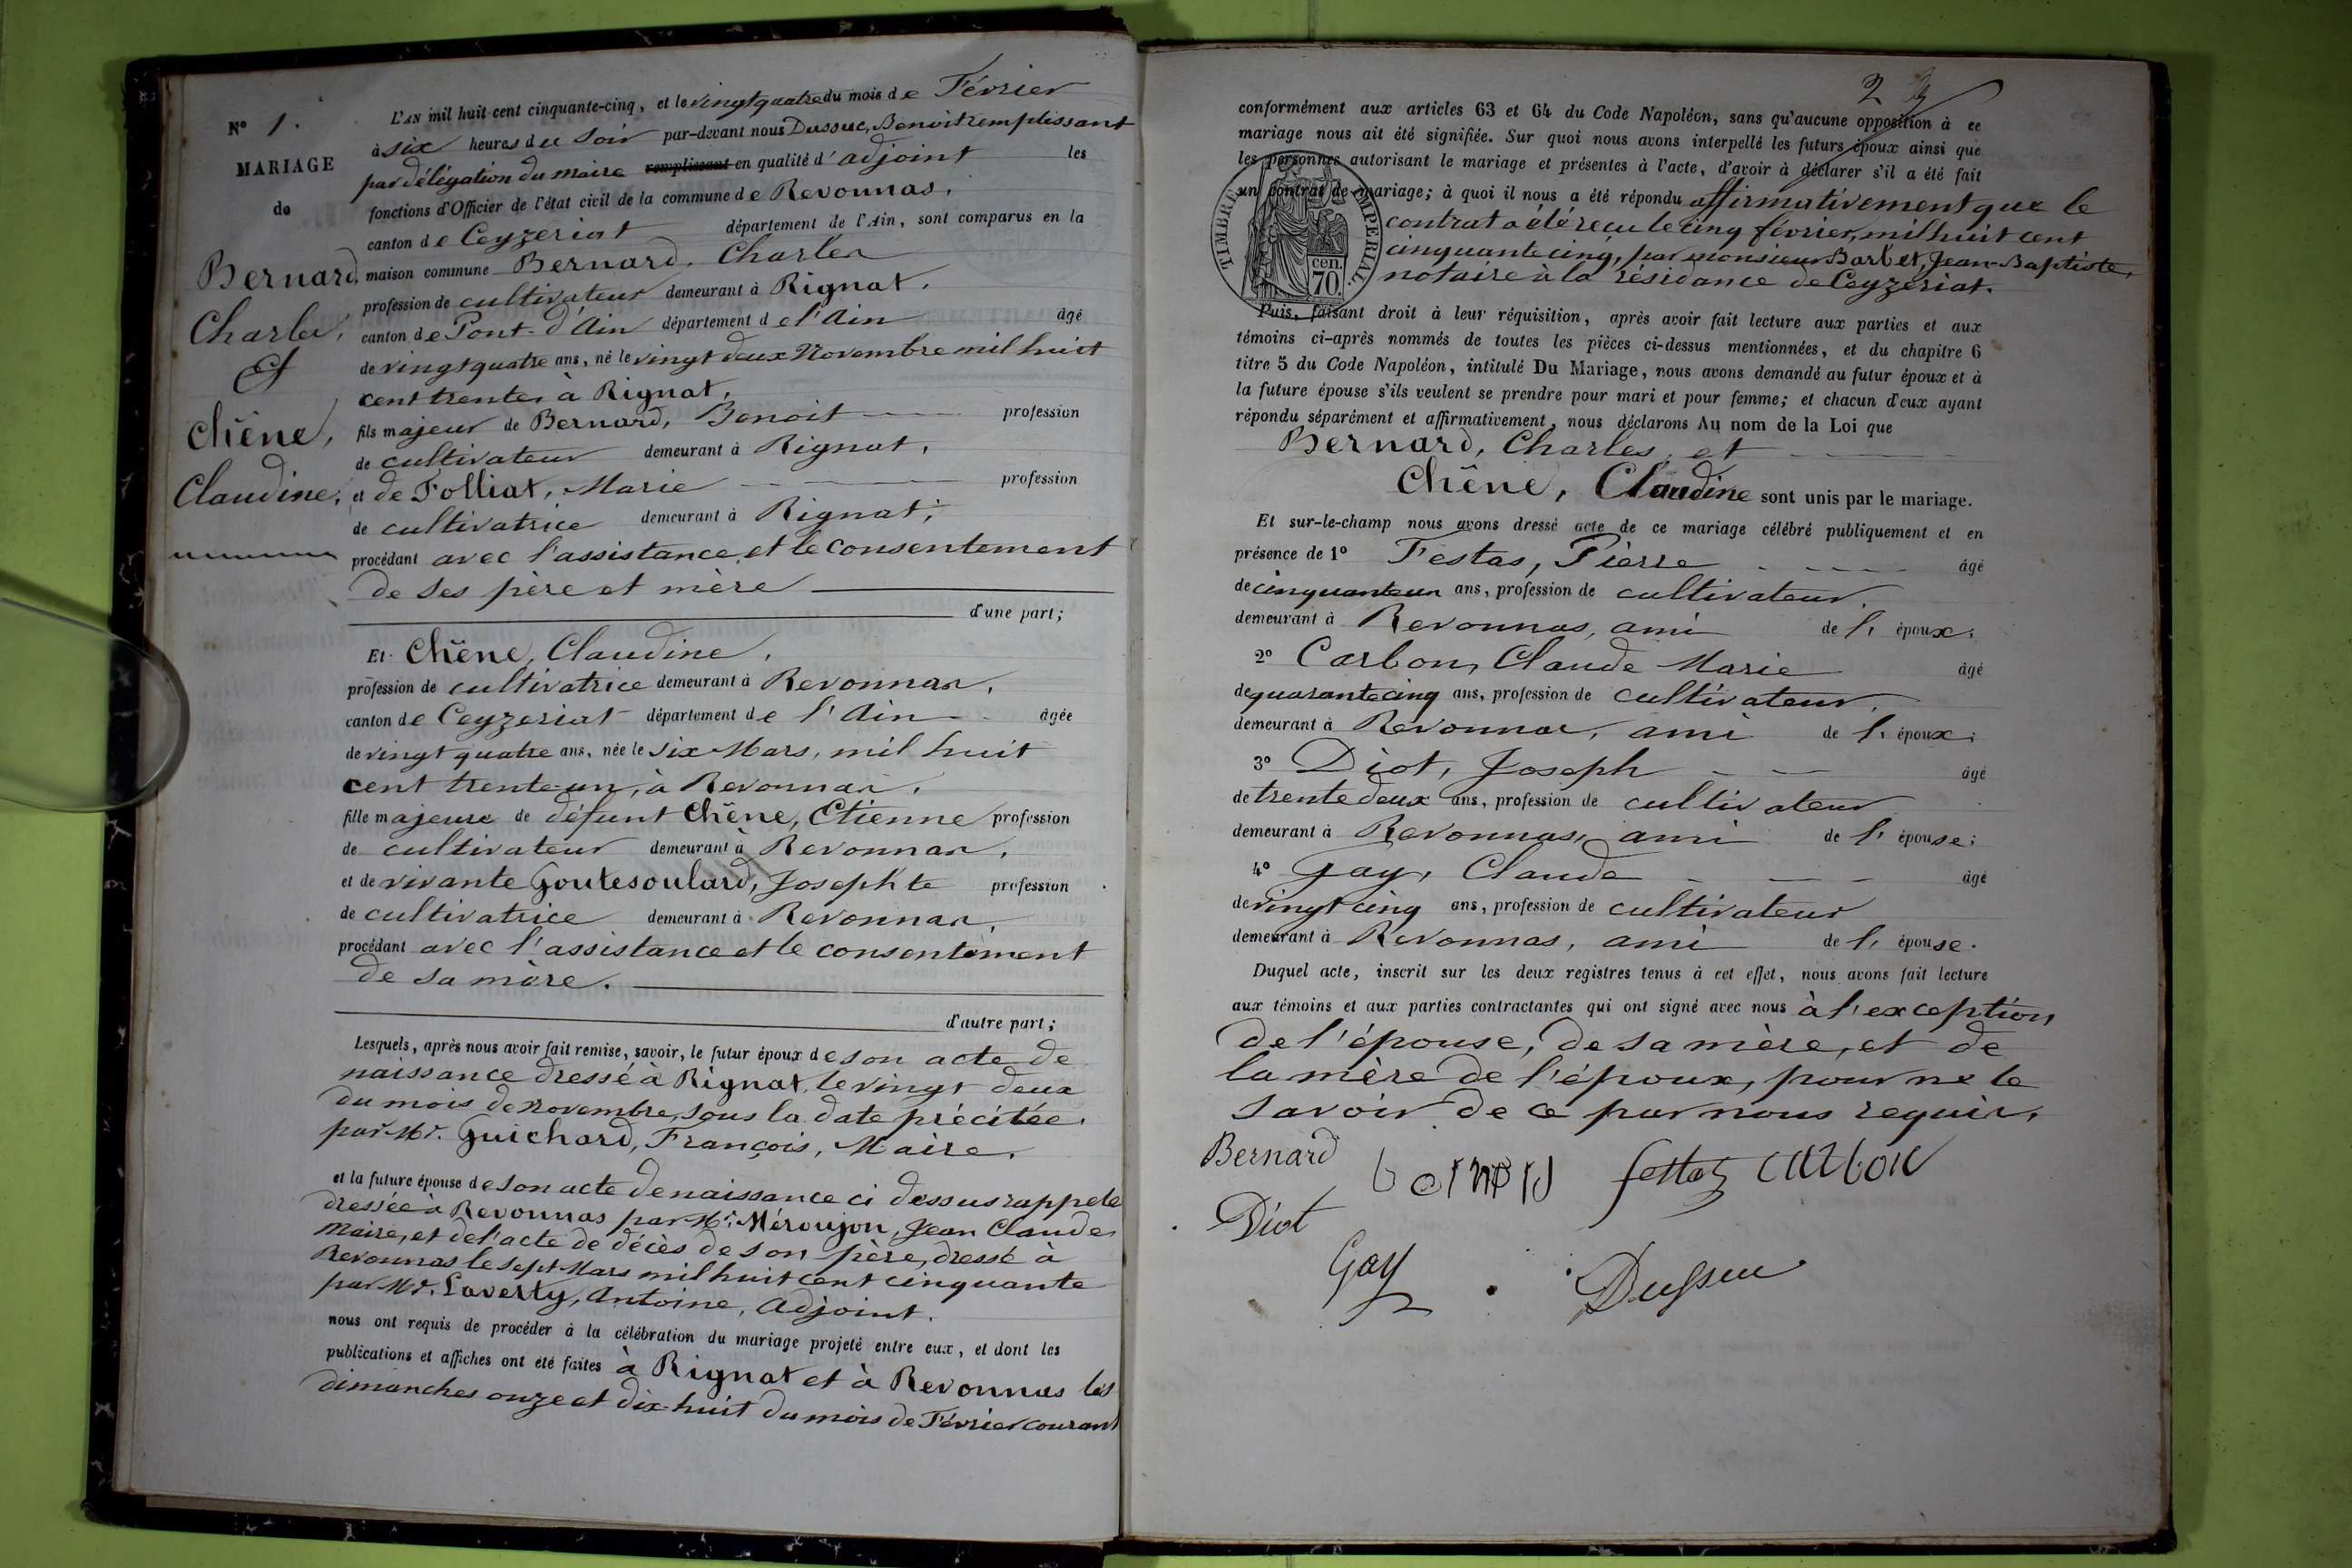 N° 1.
MARIAGE
de
Bernard,
Charles,
Et
Chêne,
Claudine,
L'AN mil huit cent cinquante-cinq, et le vingt quatre du mois de Février
à six heures du soir par-devant nous Dussuc, Benoit remplissant
par délégation du maire remplissant en qualité d'adjoint les
fonctions d'Officier de l'état civil de la commune de Revonnas,
canton de Ceyzeriat département de l'Ain, sont comparus en la
maison commune Bernard, Charles
profession de cultivateur demeurant à Rignat,
canton de Pont-d'Ain département de l'Ain âgé
de vingt quatre ans, né le vingt deux Novembre mil huit
cent trente, à Rignat,
fils majeur de Bernard, Benoit profession
de cultivateur demeurant à Rignat,
et de Folliat, Marie profession
de cultivatrice demeurant à Rignat;
procédant avec l'assistance et le consentement
de ses père et mère
d'une part;
Et Chêne, Claudine,
profession de cultivatrice demeurant à Revonnas,
canton de Ceyzeriat département de l'Ain âgée
de vingt quatre ans, née le six Mars, mil huit
cent trente-un, à Revonnas,
fille majeure de défunt Chêne, Etienne profession
de cultivateur demeurant à Revonnas,
et de vivante Goutesoulard, Josephte profession
de cultivatrice demeurant à Revonnas,
procédant avec l'assistance et le consentement
de sa mère.
d'autre part;
Lesquels, après nous avoir fait remise, savoir, le futur époux de son acte de
naissance dressé à Rignat, le vingt deux
du mois de novembre, sous la date précitée,
par Mr. Guichard, François, Maire.
et la future épouse de son acte de naissance ci dessus rappelé
dressée à Revonnas par Mr. Méroujon, Jean Claude,
Maire, et de l'acte de décès de son père, dressé à
Revonnas le sept Mars mil huit cent cinquante
par Mr. Laverty, Antoine, adjoint.
nous ont requis de procéder à la célébration du mariage projeté entre eux, et dont les
publications et affiches ont été faites à Rignat et à Revonnas les
dimanches onze et dix-huit du mois de Février courant
2
conformément aux articles 63 et 64 du Code Napoléon, sans qu'aucune opposition à ce
mariage nous ait été signifiée. Sur quoi nous avons interpellé les futurs époux ainsi que
les personnes autorisant le mariage et présentes à l'acte, d'avoir à déclarer s'il a été fait
un contrat de mariage; à quoi il nous a été répondu affirmativement que le
contrat a été reçu le cinq février, mil huit cent
cinquante cinq, par monsieur Barbet, Jean-Baptiste,
notaire à la résidance de Ceyzériat.
TIMBRE IMPERIAL
cen.
70
Puis, faisant droit à leur réquisition, après avoir fait lecture aux parties et aux
témoins ci-après nommés de toutes les pièces ci-dessus mentionnées, et du chapitre 6
titre 5 du Code Napoléon, intitulé Du Mariage, nous avons demandé au futur époux et à
la future épouse s'ils veulent se prendre pour mari et pour femme; et chacun d'eux ayant
répondu séparément et affirmativement, nous déclarons Au nom de la Loi que
Bernard, Charles, et
Chêne, Claudine sont unis par le mariage.
Et sur-le-champ nous avons dressé acte de ce mariage célébré publiquement et en
présence de 1° Festas, Pierre âgé
de cinquante un ans, profession de cultivateur,
demeurant à Revonnas, ami de l'époux;
2° Carbon, Claude Marie âgé
de quarante cinq ans, profession de cultivateur,
demeurant à Revonnas, ami de l'époux;
3° Diot, Joseph âgé
de trente deux ans, profession de cultivateur
demeurant à Revonnas, ami de l'épouse;
4° Gay, Claude âgé
de vingt cinq ans, profession de cultivateur
demeurant à Revonnas, ami de l'épouse.
Duquel acte, inscrit sur les deux registres tenus à cet effet, nous avons fait lecture
aux témoins et aux parties contractantes qui ont signé avec nous à l'exception
de l'épouse, de sa mère, et de
la mère de l'époux, pour ne le
savoir de ce par nous requis.
Bernard festas carbon
Diot
Gay
Dussuc